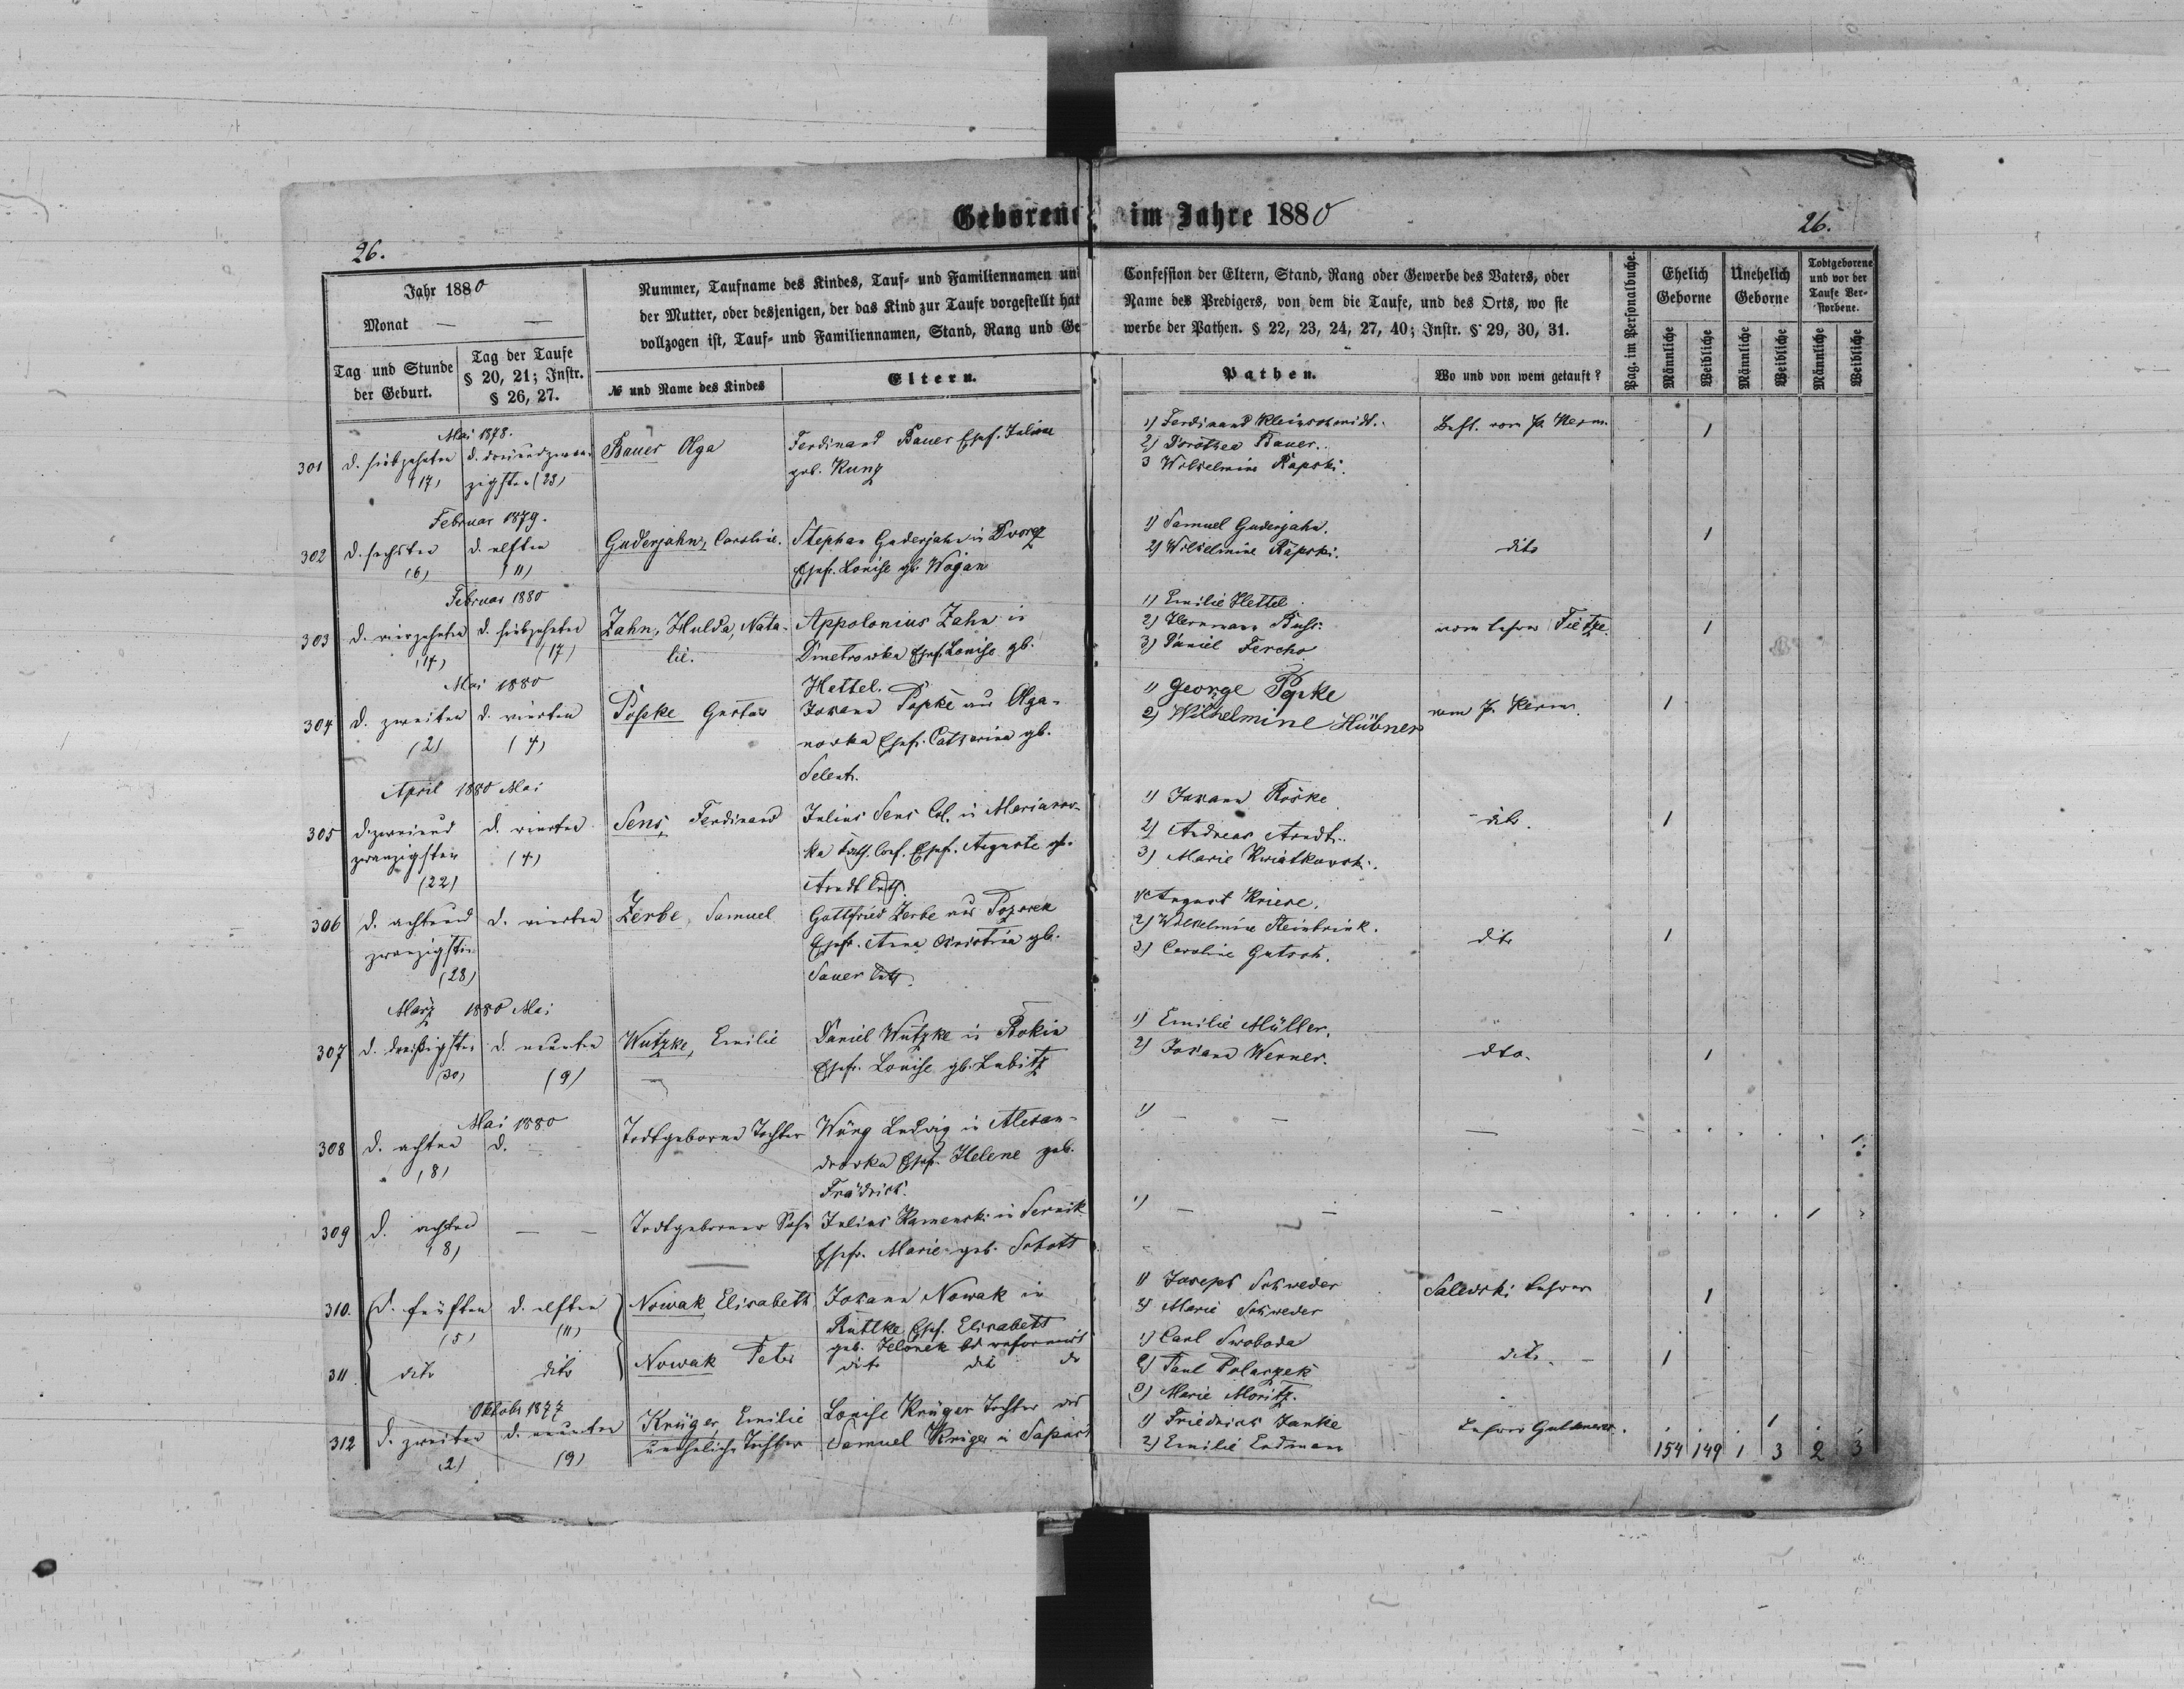 Geborene im Jahre 1880
26.
26.
Jahr 1880
Monat — —
Tag und Stunde
der Geburt.
Tag der Taufe
§ 20, 21; Instr.
§ 26, 27.
Nummer, Taufname des Kindes, Tauf- und Familiennamen un
der Mutter, oder desjenigen, der das Kind zur Taufe vorgestellt hat
vollzogen ist, Tauf- und Familiennamen, Stand, Rang und Ge
№ und Name des Kindes
Eltern.
Confession der Eltern, Stand, Rang oder Gewerbe des Vaters, oder
Name des Predigers, von dem die Taufe, und des Orts, wo sie
werbe der Pathen. § 22, 23, 24, 27, 40; Instr. § 29, 30, 31.
Pathen.
Wo und von wem getauft?
Pag. im Personalbuche.
Ehelich
Geborne
Unehelich
Geborne
Todtgeborene
und vor der
Taufe Ver-
storbene.
Männliche
Weibliche
Männliche
Weibliche
Männliche
Weibliche
Mai 1878.
301 d. siebzehnten d. dreiundzwan-
(17) zigsten (23)
Bauer Olga
Ferdinand Bauer Ehefr. Juliane
geb. Kunz
1) Ferdinand Kleinschmidt.
2) Dorothea Bauer.
3 Wilhelmine Rapski.
1
Februar 1879.
302 d. sechsten d. elften
(6) (11)
Guderjahn, Caroline.
Stephan Guderjahn in Dworez
Ehefr. Louise gb. Wogan
1) Samuel Guderjahn.
2) Wilhelmine Rapski.
dito
1
Februar 1880
303 d. vierzehnten d. siebzehnten
(14) (17)
Zahn, Hulda, Nata-
lie.
Appolonius Zahn in
Dmetrowka Ehefr. Louise gb.
Hettel.
1) Emilie Hettel
2) Herrmann Buss:
3) Daniel Fercho
vom Lehrer Tietze.
1
Mai 1880
304 d. zweiten d. vierten
(2) (4)
Popke Gustav
Johann Popke aus Olga-
nowka Ehefr. Catharina gb.
Selent.
1) George Popke
2) Wilhelmine Hübner
1
April 1880 Mai
305 d. zweiund d. vierten
zwanzigsten (4)
(22)
Sens, Ferdinand
Julius Sens Col. in Marianow-
ka Ehefr. Auguste gb.
Arndt
1) Johann Röske
2) Andreas Arndt.
3) Marie Kwiatkowski.
dito.
1
306 d. achtund d. vierten
zwanzigsten
(28)
Zerbe, Samuel
Gottfried Zerbe aus Pozarek
Ehefr. Anna Christina gb.
Sauer
1) August Kriese.
2) Wilhelmine Steinbrink.
3) Caroline Gutsch.
dito
1
März 1880 Mai
307 d. dreißigsten d. neunten
(30) (9)
Wutzke, Emilie
Daniel Wutzke in Rokin
Ehefr. Louise gb. Lubitz
1) Emilie Müller.
2) Johann Werner.
dto.
1
Mai 1880
308 d. achten d.
(8)
Todtgeborene Tochter
Wüng Ludwig in Alexan-
drowka Ehefr. Helene geb.
Frädrich.
1) — —
1.
309 d. achten — —
(8)
Todtgeborener Sohn
Julius Kamenski in Sernik
Ehefr. Marie geb. Schott
1) — —
1
310. d. fünften d. elften
(5) (11)
Nowak Elisabeth
Johann Nowak in
Ehefr. Elisabeth
geb. Jelonek bd reformirt
1) Joseph Schweder
2) Marie Schweder
Salewski Lehrer
1
311 dito dito
Nowak Peter
dito dito do
1) Carl Swoboda
2) Paul Polaczek
3) Marie Moritz.
dito. —
1
Oktober 1877
312 d. zweiten d. neunten
(2) (9)
Krüger, Emilie
uneheliche Tochter
Louise Krüger Tochter des
Samuel Krüger
1) Friedrich Janke
2) Emilie Erdmann
1
154 149 1 3 2 3